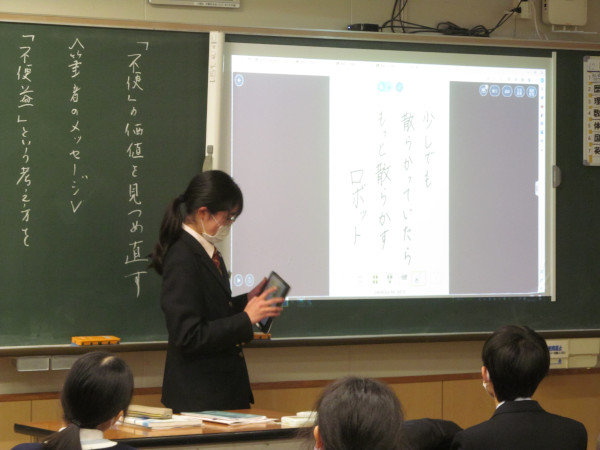 「不便」の価値を見つめ直す
〈筆者のメッセージ〉
「不便益」という考え方を
少しでも
散らかっていたら
もっと散らかす
ロボット
歴
理
数
体
国
英